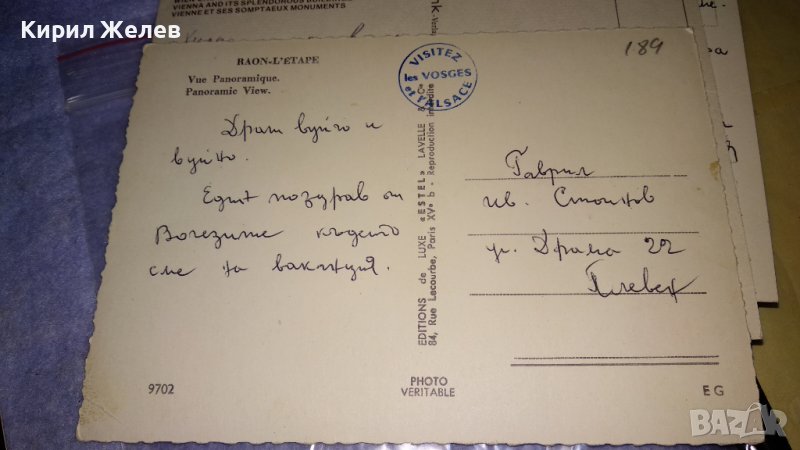 Кирил Желев
VIENNA AND ITS SPLENDOROUS BUILDINGS
VIENNE ET SES SOMPTAEUX MONUMENTS
189
RAON-L'ETAPE
Vue Panoramique.
Panoramic View.
VISITEZ
les VOSGES
et l'ALSACE
Драги вуйчо и
вуйно.
Един поздрав от
Вогезите където
сме на ваканция.
EDITIONS de LUXE «ESTEL» LAVELLE & Cie
84, Rue Lecourbe, Paris XVe b - Reproduction interdite
Гаврил
ив. Стоинов
ул. Драма 22
Плевен
9702
PHOTO
VERITABLE
E G
BAZAR